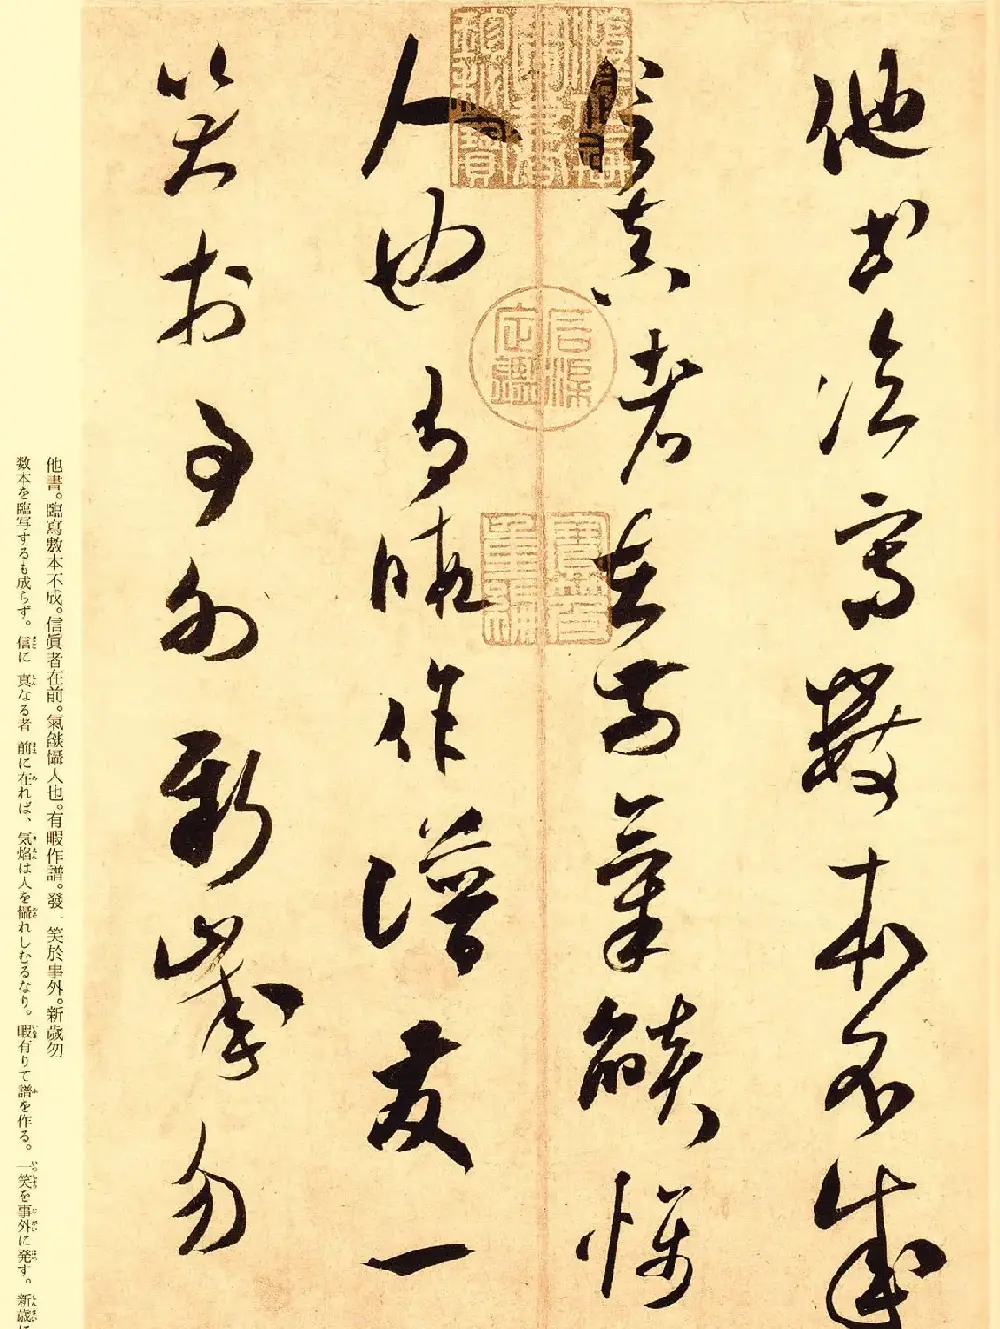 他書臨寫數本不成
信真者在前氣燄懾
人也有暇作譜發一
笑於事外新歲勿
他書。臨寫數本不成。信眞者在前。氣燄懾人也。有暇作譜。發一笑於事外。新歲勿
数本を臨写するも成らず。信に真なる者前に在れば、気焰は人を懾れしむるなり。暇有りて譜を作る。一笑を事外に発す。新歳に